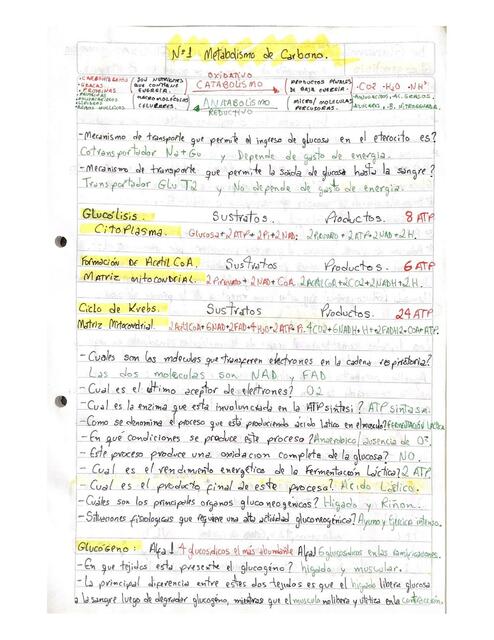 N°1 Metabolismo de Carbono.
OXIDATIVO
CATABOLISMO
ANABOLISMO
REDUCTIVO
-CARBOHIDRATOS
-GRASAS
-PROTEINAS
SON NUTRIENTES
QUE CONTIENE
ENERGIA.
MACROMOLECULAS
CELULARES.
PRODUCTOS FINALES
DE BAJA ENERGIA.
MICRO/MOLECULAS
PERCUSORAS.
-CO2 -H2O -NH³
-Mecanismo de transporte que permite el ingreso de glucosa en el eterocito es?
Cotransportador Na+Glu y Depende de gasto de energia.
-Mecanismo de transporte que permite la salida de glucosa hasta la sangre?
Transportador Glu T2 y No depende de gasto de energia.
Glucólisis. Sustratos. Productos. 8 ATP
Citoplasma. Glucosa+2ATP+2Pi+2NAD: 2Piruvato+2ATP+2NAD+2H.
Formación de Acetil CoA. Sustratos Productos. 6 ATP
Matriz mitocondrial. 2Piruvato+2NAD+CoA. 2Acetil CoA+2CO2+2NADH+2H.
Ciclo de Krebs. Sustratos Productos. 24 ATP
Matriz Mitocondrial. 2AcetilCoA+6NAD+2FAD+4H2O+2ATP+Pi. 4CO2+6NADH+H+2FADH2+CoA+ATP.
-Cuales son las moleculas que transfieren electrones en la cadena respiratoria?
Las dos moleculas son NAD y FAD
-Cual es el ultimo aceptor de electrones? O2
-Cual es la enzima que esta involucrada en la ATP sintesi? ATP sintasa.
-Como se denomina el proceso que esta produciendo ácido latico en el musculo? FERMENTACIÓN LACTICA
-En qué condiciones se produce este proceso? Anaerobico, ausencia de O².
-Este proceso produce una oxidacion completa de la glucosa? NO.
-Cual es el rendimiento energético de la Fermentación Láctica? 2 ATP
-Cual es el producto final de este proceso? Acido Láctico.
-Cuáles son los principales organos gluconeogenicos? Higado y Riñon.
-Situaciones fisiologicas que requiere una alta actividad gluconeogénica? Ayuno y Ejercicio intenso.
Glucógeno: Alfa 1 4 glucosidicos el mas abundante Alfa 1 6 glucosidicos en las ramificaciones.
-En que tejidos esta presente el glucogéno? higado y muscular.
-La principal diferencia entre estes dos tejidos es que el higado libera glucosa
a la sangre luego de degradar glucogéno, mientras que el musculo no libera y utiliza en la contracción.